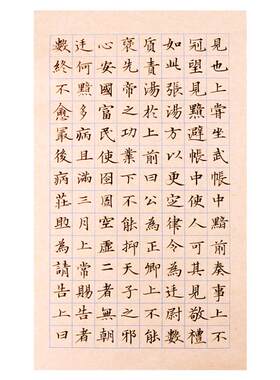 見也上嘗坐武帳中黯前奏事上不
冠望見黯避帳中使人可其見敬禮
如此張湯方以更定律令為廷尉數
質責湯於上前曰公為正卿上不能
褒先帝之功業下不能抑天子之邪
心安國富民使囹圄空虛二者無朝
廷何黯多病且滿三月上常賜告者
數終不愈最後病莊助為請告上曰